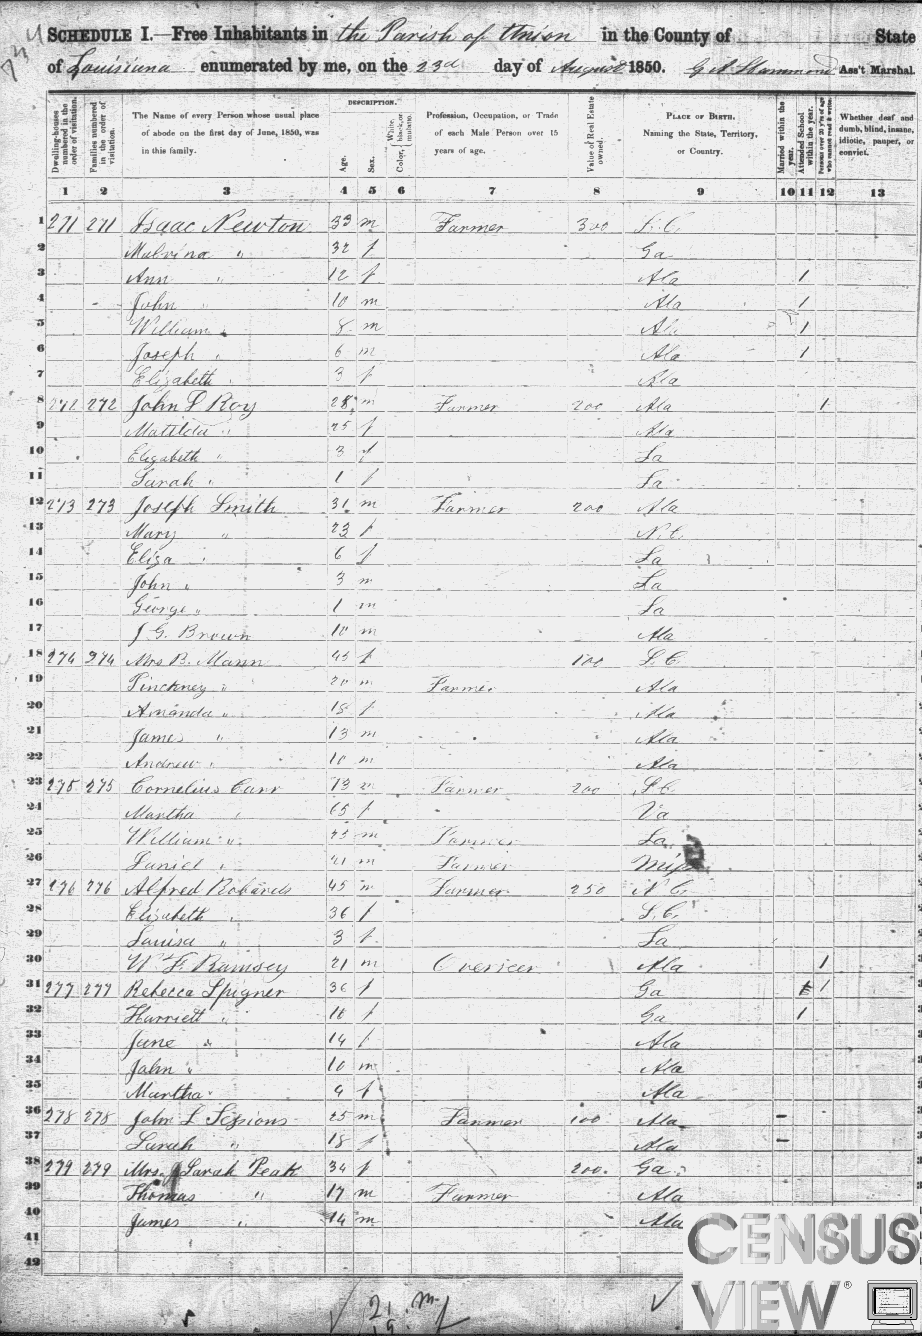 SCHEDULE I.—Free Inhabitants in the Parish of Union in the County of State
of Louisiana enumerated by me, on the 23d day of August 1850. Hammond Ass't Marshal.
DESCRIPTION.
Dwelling-houses numbered in the order of visitation.
Families numbered in the order of visitation.
The Name of every Person whose usual place of abode on the first day of June, 1850, was in this family.
Age.
Sex.
Color, White, black, or mulatto.
Profession, Occupation, or Trade of each Male Person over 15 years of age.
Value of Real Estate owned.
PLACE OF BIRTH. Naming the State, Territory, or Country.
Married within the year.
Attended School within the year.
Persons over 20 y'rs of age who cannot read & write.
Whether deaf and dumb, blind, insane, idiotic, pauper, or convict.
1 2 3 4 5 6 7 8 9 10 11 12 13
1 271 271 Isaac Newton 33 m Farmer 300 S. C.
2 Malvina " 32 f Ga
3 Ann " 12 f Ala 1
4 John " 10 m Ala 1
5 William " 8 m Ala 1
6 Joseph " 6 m Ala 1
7 Elizabeth " 3 f Ala
8 272 272 John L Roy 28 m Farmer 200 Ala 1
9 Matilda " 25 f Ala
10 Elizabeth " 3 f La
11 Sarah " 1 f La
12 273 273 Joseph Smith 31 m Farmer 200 Ala
13 Mary " 23 f N. C.
14 Eliza " 6 f La
15 John " 3 m La
16 George " 1 m La
17 J. G. Brown 10 m Ala
18 274 274 Mrs B. Mann 45 f 100 S. C.
19 Pinckney " 20 m Farmer Ala
20 Amanda " 18 f Ala
21 James " 13 m Ala
22 Andrew " 10 m Ala
23 275 275 Cornelius Carr 73 m Farmer 200 S. C.
24 Martha " 65 f Va
25 William " m Farmer La
26 Daniel " 21 m Farmer Mip
27 276 276 Alfred Robards 45 m Farmer 250 N. C.
28 Elizabeth " 36 f S. C.
29 Louisa " 3 f La
30 W. F. Ramsey 21 m Overicer Ala 1
31 277 277 Rebecca Spigner 36 f Ga 1
32 Harriett " 16 f Ga 1
33 Jane " 14 f Ala
34 John " 10 m Ala
35 Martha " f Ala
36 278 278 John L Sessions 25 m Farmer 100 Ala –
37 Sarah " 18 f Ala –
38 279 279 Mrs Sarah Peak 34 f 200 Ga
39 Thomas " 17 m Farmer Ala
40 James " 14 m Ala
41
42
21 m
19 f
CENSUS
VIEW ®